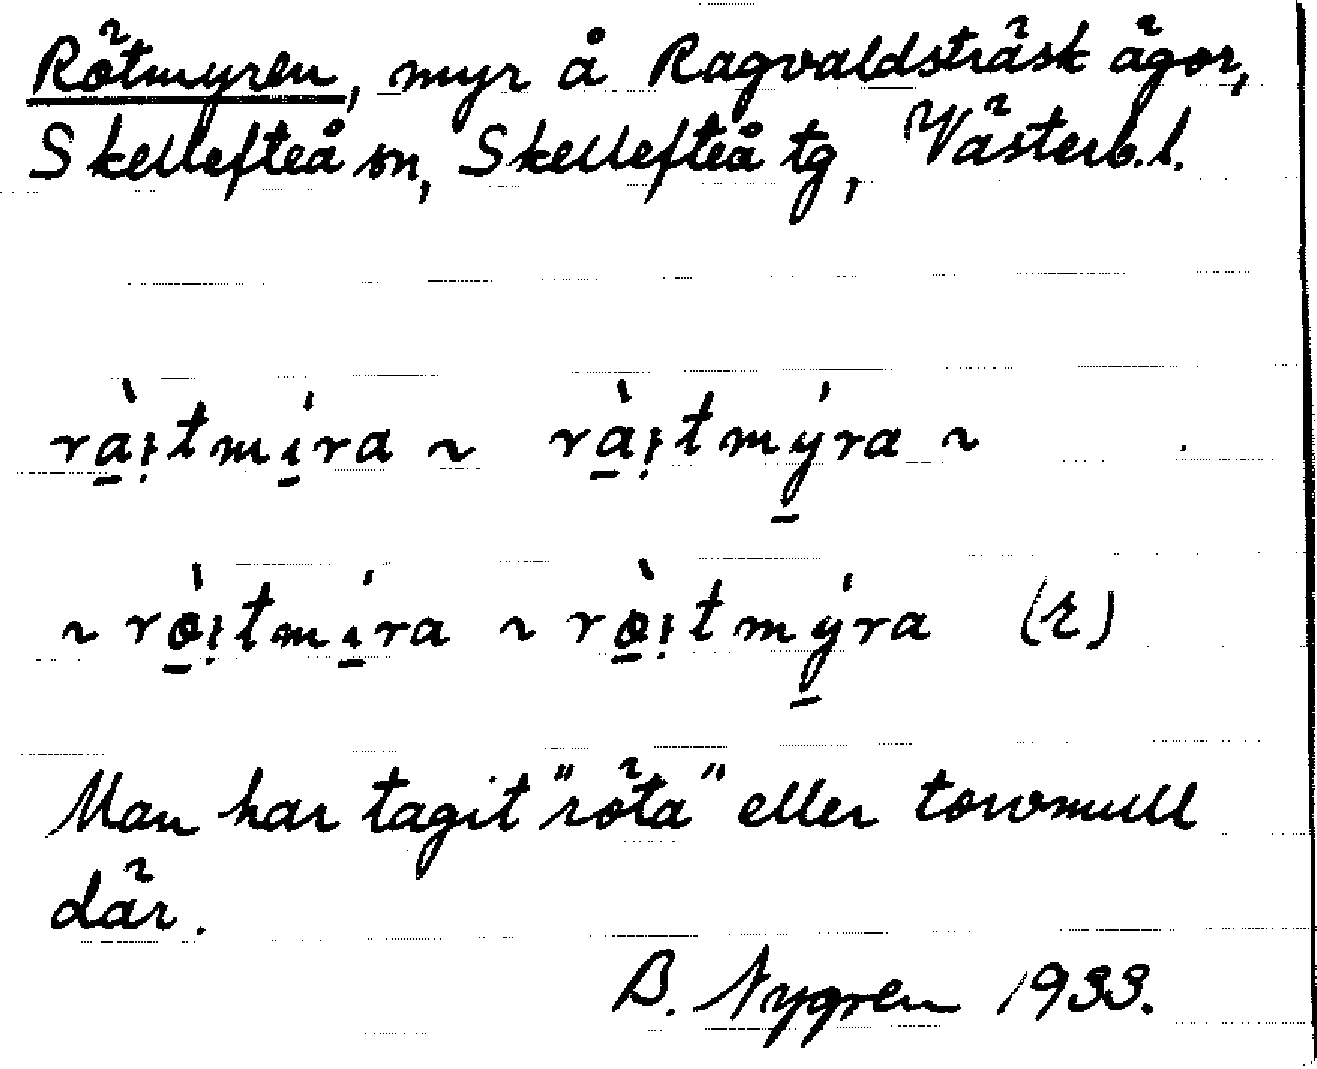 Rötmyren, myr å Ragvaldsträsk ägor,
Skellefteå sn, Skellefteå tg, Västerb.l.
rà̱ı̣tmí̱ra ~ rà̱ı̣tmý̱ra ~
~ rö̱̀ı̣tmí̱ra ~ rö̱̀ı̣tmý̱ra (r)
Man har tagit "röta" eller torvmull
där.
B. Nygren 1933.